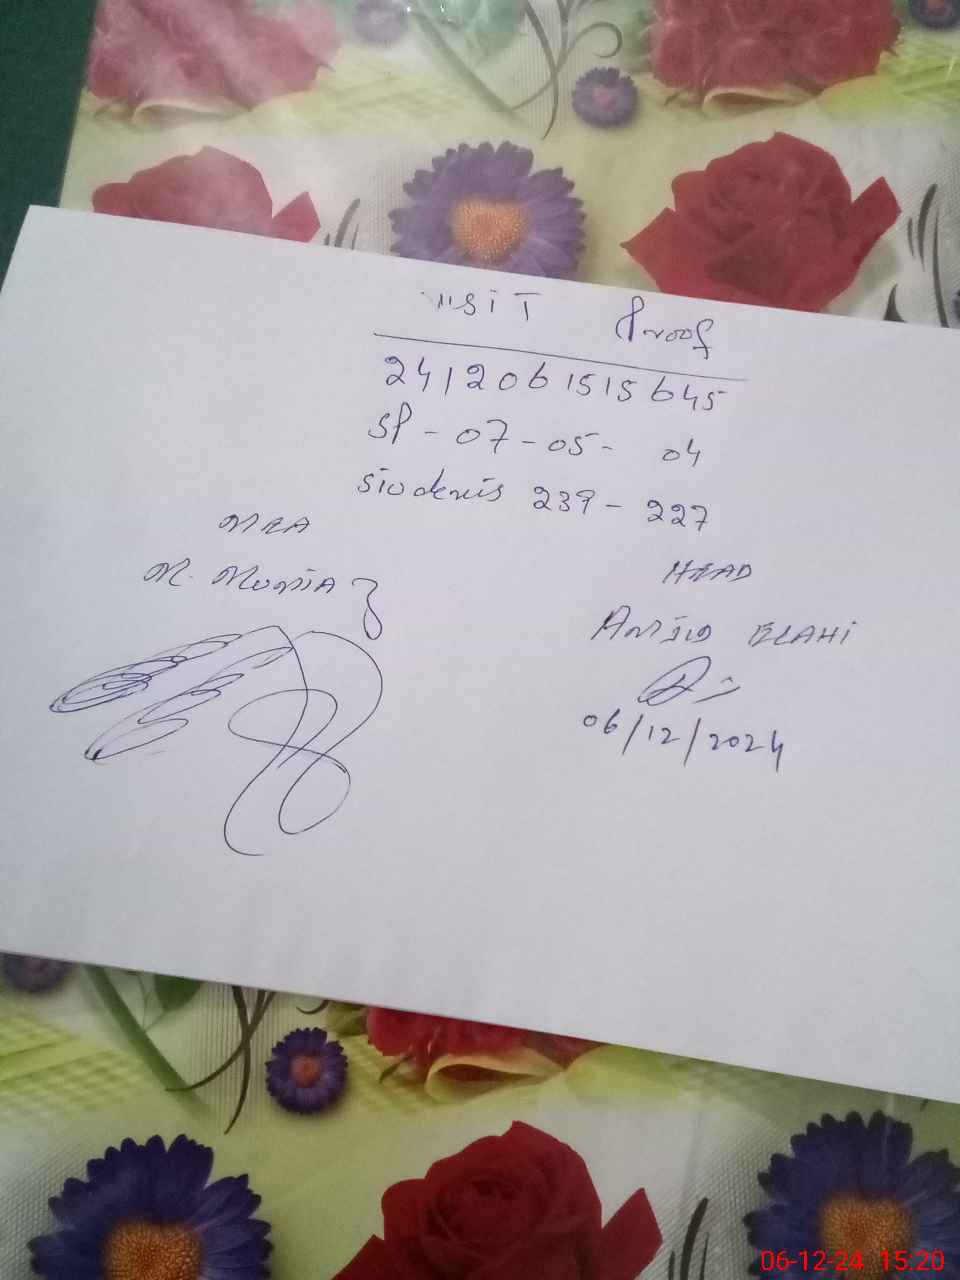 Visit Proof
2412061515645
SP-07-05-04
Students 239-227
MEA
M. Mumtaz
HEAD
Amjid ELAHi
06/12/2024
06-12-24 15:20